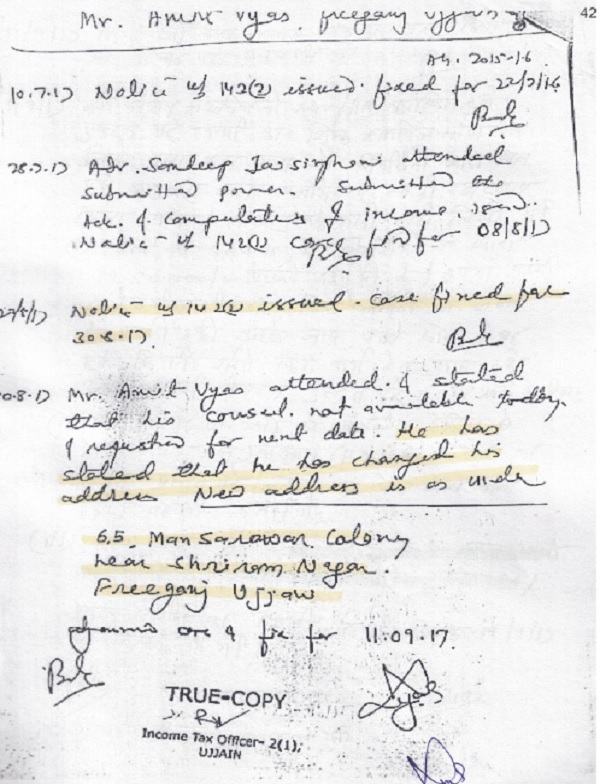 42
Mr. Amit Vyas freeganj Ujjain
AY. 2015-16
10.7.17 Notice u/s 142(1) issued. fixed for
28.7.17 Adv. Sandeep attended
submitted power. Submitted the
Ack. of Computation of income
Notice u/s 142(1) case for 08/8/17
Notice u/s 142(1) issued. Case fixed for
30.8.17
Mr. Amit Vyas attended. & stated
that his counsel. not available today.
& requested for next date. He has
stated that he has changed his
address New address is as under
65. Mansarowar Colony
near Shriram Nagar.
Freeganj Ujjain
for 11.09.17.
TRUE-COPY
Income Tax Officer- 2(1),
UJJAIN